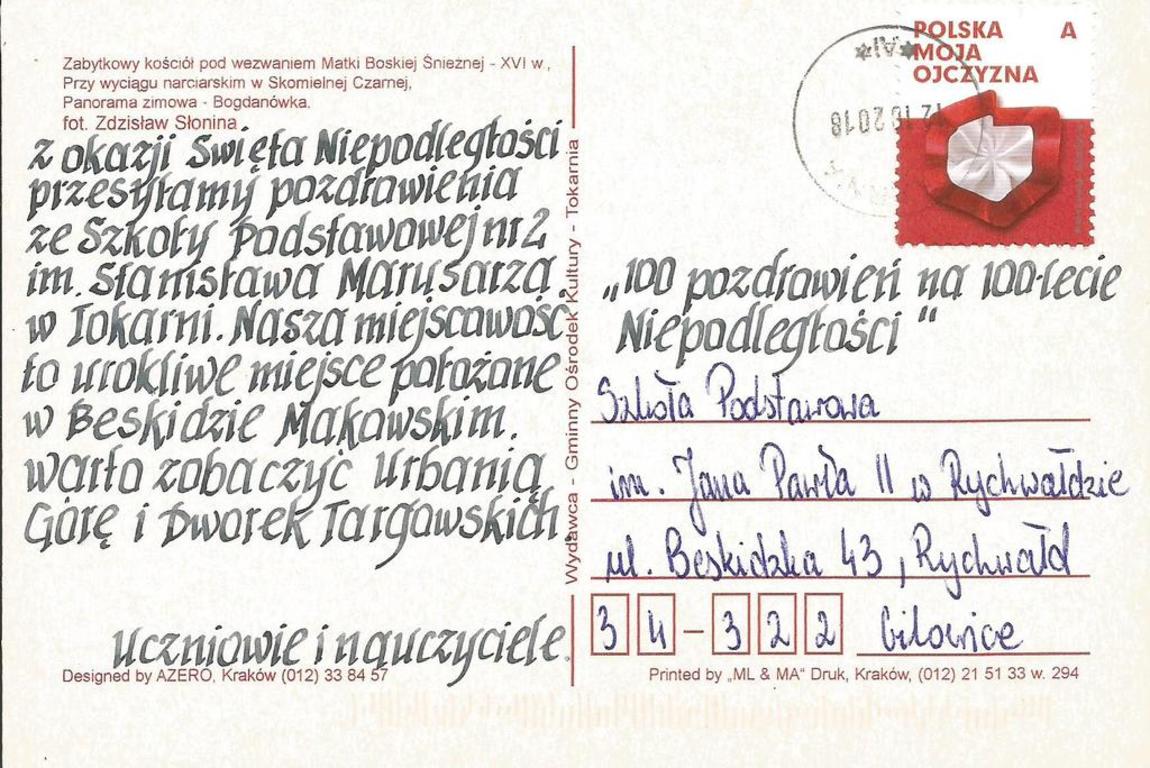 Zabytkowy kościół pod wezwaniem Matki Boskiej Śnieżnej - XVI w.,
Przy wyciągu narciarskim w Skomielnej Czarnej,
Panorama zimowa - Bogdanówka.
fot. Zdzisław Słonina
z okazji Święta Niepodległości
przesyłamy pozdrowienia
ze Szkoły Podstawowej nr 2
im. Stanisława Marusarza
w Tokarni. Nasza miejscowość
to urokliwe miejsce położone
w Beskidzie Makowskim.
warto zobaczyć Urbanią
Górę i Dworek Targowskich.
Uczniowie i nauczyciele.
Designed by AZERO, Kraków (012) 33 84 57
Wydawca - Gminny Ośrodek Kultury - Tokarnia
POLSKA A
MOJA
OJCZYZNA
12.10.2018
„100 pozdrowień na 100-lecie
Niepodległości"
Szkoła Podstawowa
im. Jana Pawła II w Rychwałdzie
ul. Beskidzka 43, Rychwałd
34-322 Gilowice
Printed by „ML & MA" Druk, Kraków, (012) 21 51 33 w. 294